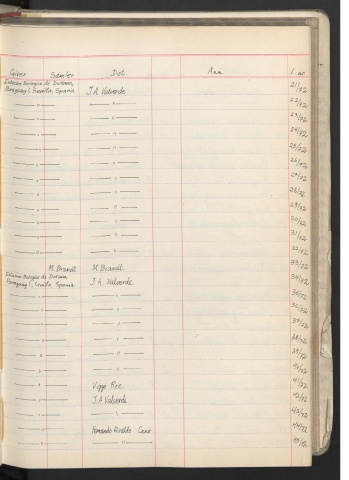 Giver Samler Dat. Anm. J. nr.
Estacion Biologica de Doñana,
Paraguay 1, Sevilla, Spania J. A. Valverde 21/72
— " — — " — 22/72
— " — — " — 23/72
— " — — " — 24/72
— " — — " — 25/72
— " — — " — 26/72
— " — — " — 27/72
— " — — " — 28/72
— " — — " — 29/72
— " — — " — 30/72
— " — — " — 31/72
— " — — " — 32/72
M. Brandt M. Brandt 33/72
Estacion Biologica de Doñana
Paraguay 1, Sevilla, Spania J. A. Valverde 34/72
— " — — " — 35/72
— " — — " — 36/72
— " — — " — 37/72
— " — — " — 38/72
— " — — " — 39/72
— " — — " — 40/72
— " — Viggo Ree 41/72
— " — J. A. Valverde 42/72
— " — — " — 43/72
— " — Fernando Cano 44/72
— " — — " — 45/72